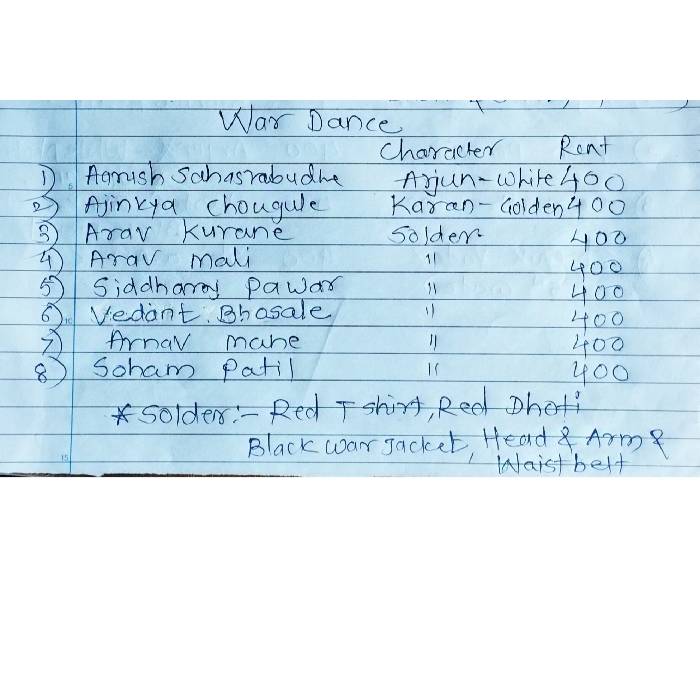 War Dance
Character Rent
1) Aarush Sahasrabudhe Arjun - White 400
2) Ajinkya Chougule Karan - Golden 400
3) Arav Kurane Solder 400
4) Arav Mali " 400
5) Siddharaj Pawar " 400
6) Vedant. Bhosale " 400
7) Arnav Mane " 400
8) Soham Patil " 400
* Solder :- Red T shirt, Red Dhoti
Black War Jacket, Head & Arm &
Waist belt